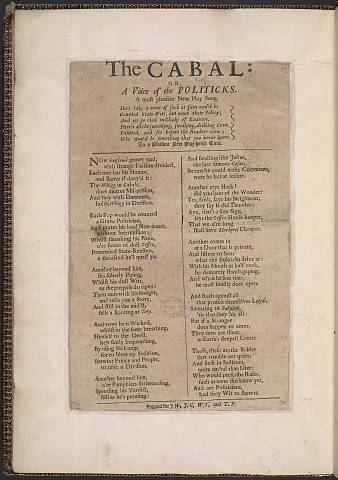 The CABAL:
OR,
A Voice of the POLITICKS.
A most pleasant New Play Song.
Here take a view of such as fain would be
Counted State-Wits, but want their Policy;
And yet go clad in Cloaks of Knavery.
Here's all the
Painted, and set before the Readers view;
Who would be something that you never knew
To a pleasant New Play-house Tune.
Now England grown mad,
with strange Passion divided,
Each one has his Humor,
and Raves if deny'd it:
The Whigg in Cabals,
does mutter Mis-prision,
And Tory with Dammees,
holds Whigg in Derision.
Each Fop would be counted
a Grave Politician,
And prates his loud Non-sence,
without Intermission;
Whilst smoaking his Nose,
o're fumes of dull Coffee,
Pretended State-Reasons,
a thousand he'l quast ye.
Another beyond him,
sits soberly Piping,
Whilst his dull Wits,
to the purpose do ripen:
Then outs with his Budget,
and tells you a Story,
And still in the midst,
falls a Ranting at Tory.
And vows he is Wicked,
whilst to the same breathing,
Himself to the Devil,
he's fairly bequeathing,
By using his Lungs
for to blow up Sedition,
Betwixt Prince and People,
to raise a Division.
Another beyond him,
o're Pamphlets sits brooding,
Spending his Verdict,
still as he's peruding:
And smelling like Julus,
the late famous Caesar,
Swears he could make Comments,
were he but at leisure.
Another crys Hark!
did you hear of the Wonder?
Yes, faith, says his Neighbour,
they say it did Thunder:
Ayn, that's a sure Sign,
says the Coffee-House-keeper,
That we e're long
shall have Cheaper.
Another comes in
at a Door that is private,
And listens to hear
what the Politicks drive at:
With his Mouth at half cock,
he demurely stands gaping,
And when he sees time,
he most loudly does
And Rails against all
that profess themselves Loyal,
Swearing to Babylon,
'tis that they hie all:
But if a Stranger
does happen to enter,
They then are silent,
as Earth's deepest Center.
These, these are the Bables
that trouble our quiet,
And suck in Sedition,
more than their Diet:
Who would prescribe Rules,
such as none did know yet,
And are Politicians,
had they Wit to shew it.
Printed for J. W, J. C, W. T, and T. P.